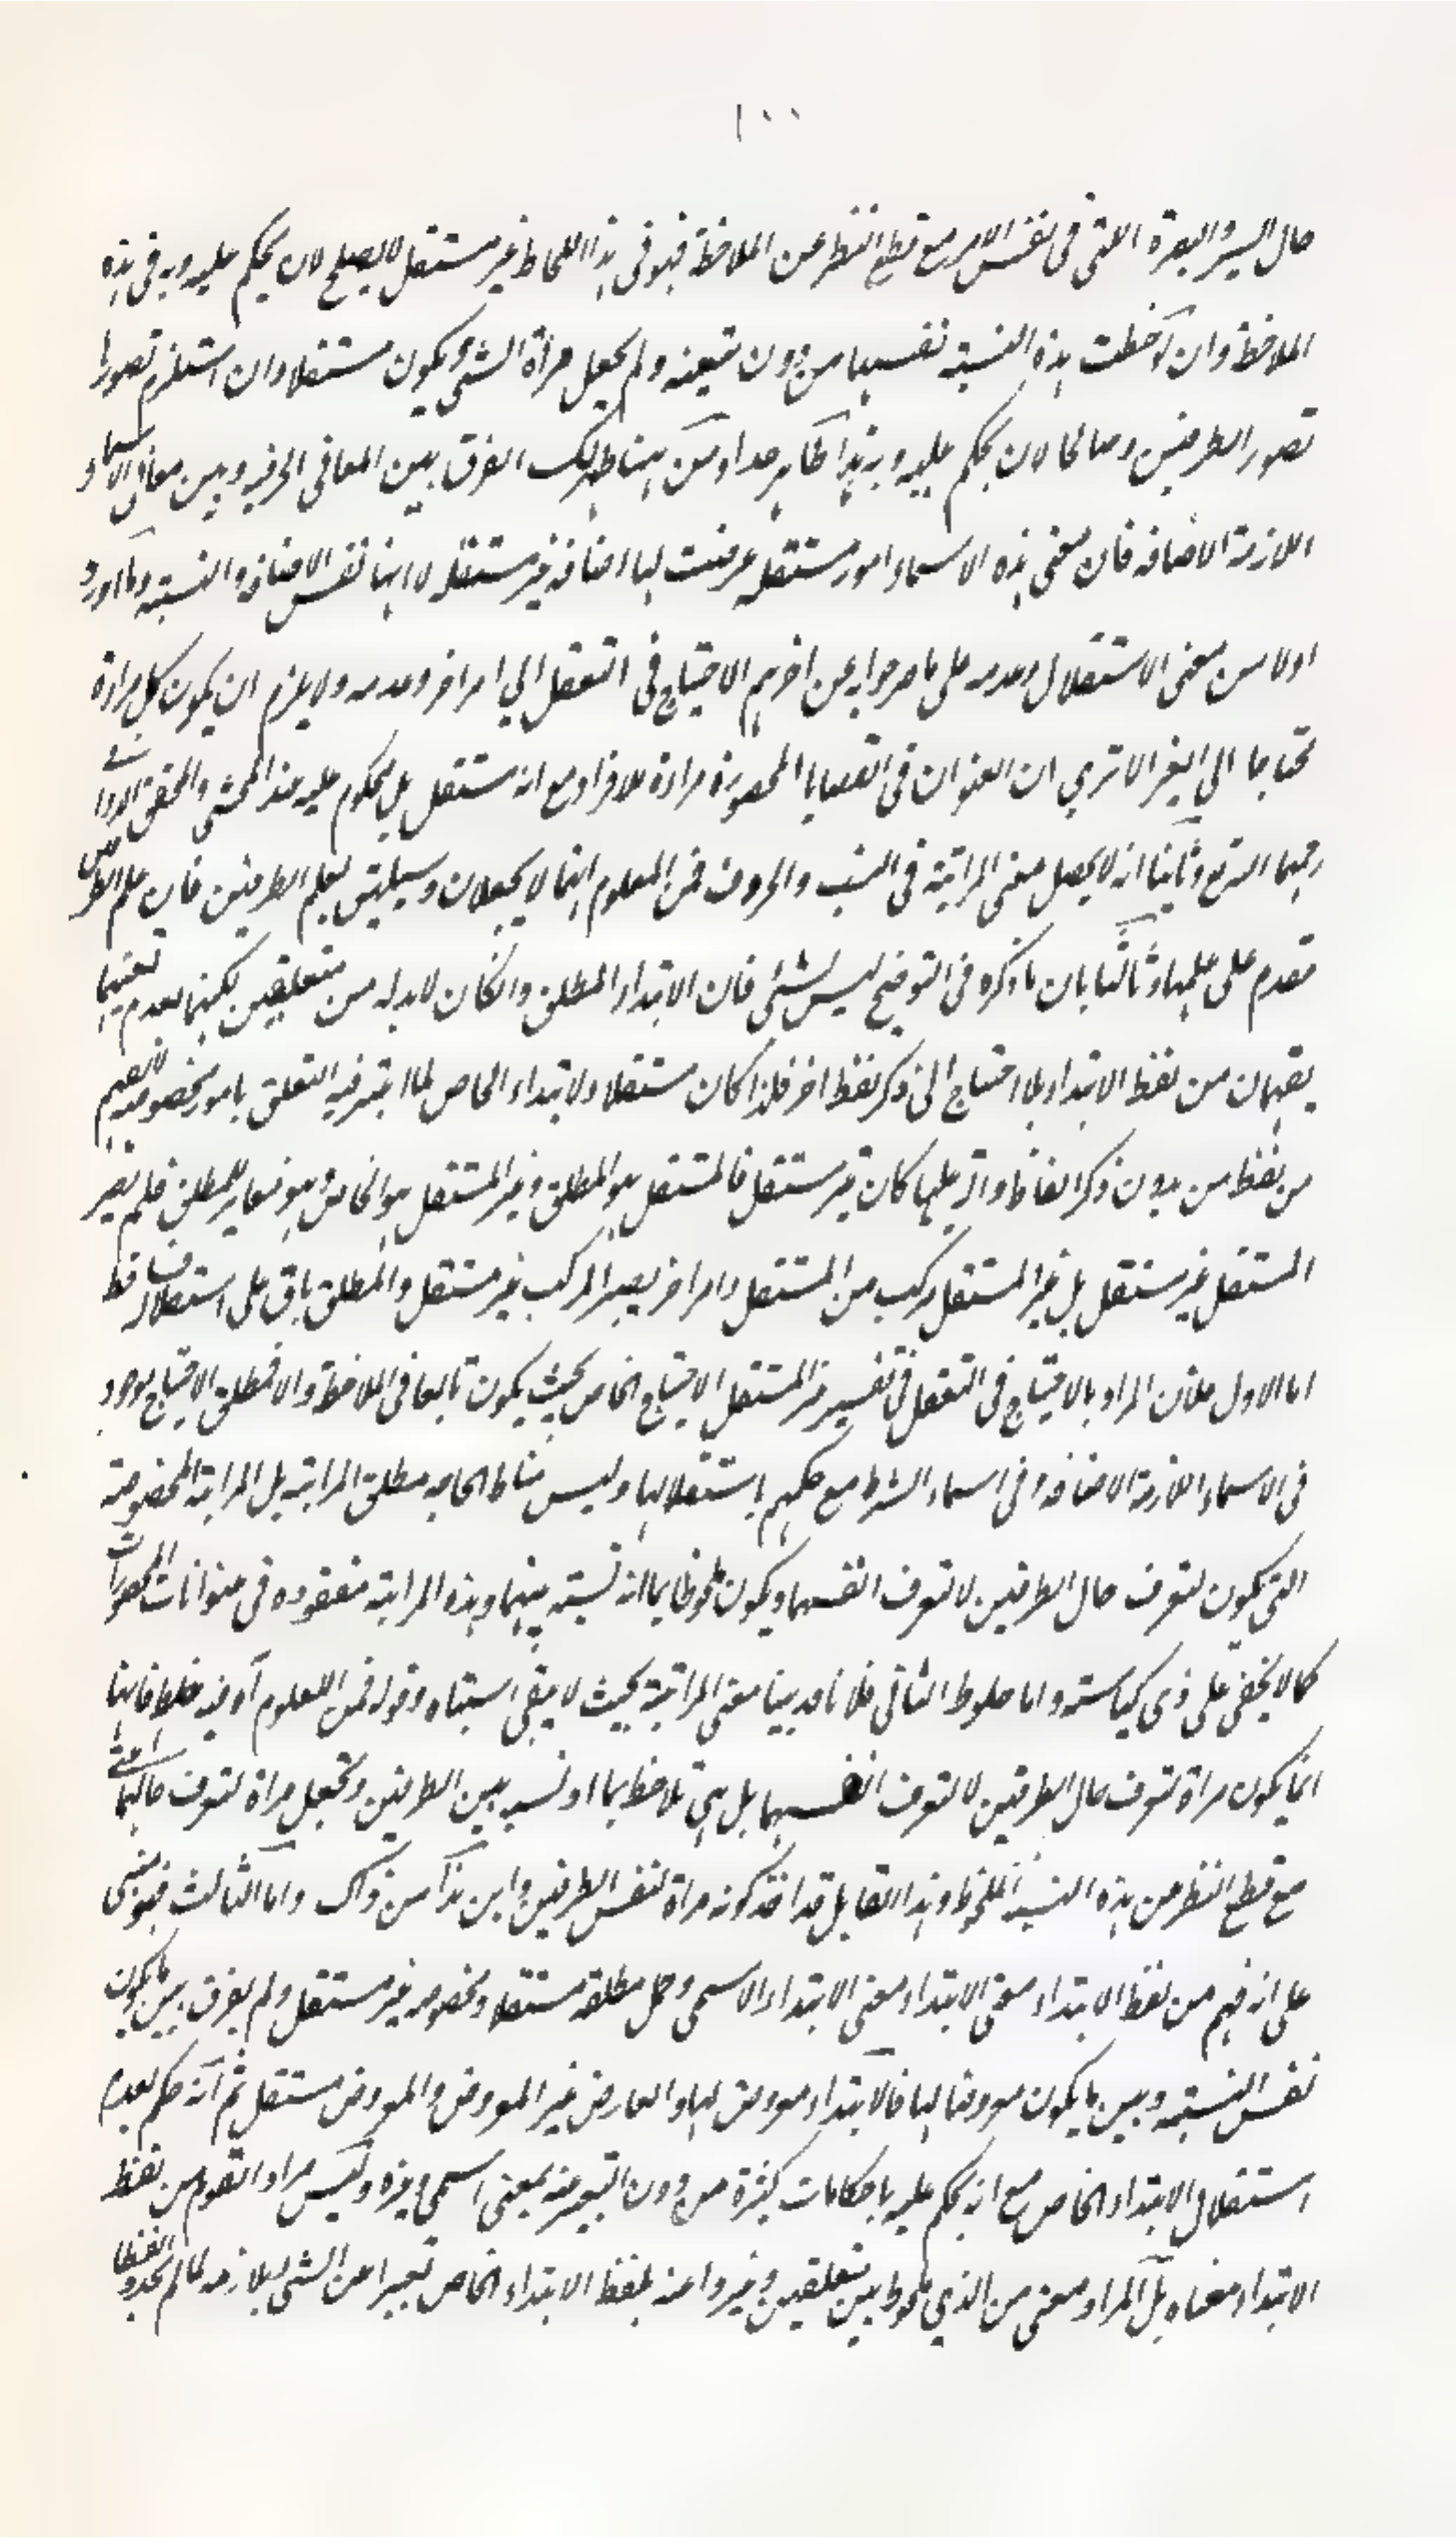 ١٠٠
حال السير والبصرة التى فى نفس الامر مع قطع النظر عن الملاحظة فهو فى هذا اللحاظ غير مستقل لايصلح لان يحكم عليه وبه فى هذه
الملاحظة وان لوحظت هذه النسبة نفسها من دون تبعية ولم يجعل مرآة الشئ ويكون مستقلا وان استلزم تصورها
تصور الطرفين وصالحا لان يحكم عليه وبه هذا ظاهر جدا ومن ههنا ظهر لك الفرق بين المعانى الحرفية وبين معانى الاسماء
اللازمة الاضافة فان معنى هذه الاسماء امور مستقلة عرضت لها اضافة غير مستقلة لا انها نفس الاضافة والنسبة وما اورد
اولا من معنى الاستقلال وعدمه على ما صرحوا به عن اخرهم الاحتياج فى التعقل الي امر اخر وعدمه ولا يلزم ان يكون كل مرادة
محتاجا الي الغير الا تري ان العنوان فى القضايا المحصورة مراة للافراد مع انه مستقل بل محكوم عليه عند المحشى والمحقق الدوانے
رحمهما الله تع وثانيا انه لايحصل معنى المراتية فى النسب والحروف فمن المعلوم انها لا يجعلان وسيلتين لعلم الطرفين فان علم الطرفين
مقدم على علمها وثالثا بان ما ذكره فى التوضيح ليس بشئ فان الابتداء المطلق وان كان لابد له من متعلقين لكنهما لعدم تعينهما
يفهمان من لفظ الابتداء بلا احتياج الى ذكر لفظ اخر فلذا كان مستقلا والابتداء الخاص لما اعتبر فيه التعلق بامور مخصوصة لا تفهم
من لفظ من بدون ذكر الفاظ دالة عليها كان غير مستقل فالمستقل هو المطلق وغير المستقل هو الخاص وهو مغاير للمطلق فلم يصر
المستقل غير مستقل بل غير المستقل مركب من المستقل وامر اخر يصير المركب غير مستقل والمطلق باق على استقلاله فساقط
اما الاول فلان المراد بالاحتياج فى التعقل فى تفسير غير المستقل الاحتياج الخاص بحيث يكون تابعا فى الملاحظة والا فمطلق الاحتياج موجود
فى الاسماء اللازمة الاضافة وفى اسماء الشرط مع حكمهم باستقلالها وليس مناط الحاجة مطلق المراتية بل المراتية المخصوصة
التى يكون لتعرف حال الطرفين لا لتعرف انفسهما ويكون ملحوظا بما انه نسبة بينهما وهذه المراتية مفقودة فى عنوانات المحصورات
كما لا يخفى على ذى كياسة واما سقوط الثانى فلانا قد بينا معنى المراتية بحيث لا يبقى اشتباه وقوله فمن المعلوم آه فيه غلط فانها
انما يكون مراة لتعرف حال الطرفين لا لتعرف انفسهما بل هى تلاحظ بما انه نسبة بين الطرفين وتجعل مراة لتعرف حالهما اعنے
مع قطع النظر عن هذه النسبة الملحوظة وهذا القايل قد اخذ كونه مراة لنفس الطرفين واين هذا من ذاك واما الثالث فهو مبنى
على انه فهم من لفظ الابتداء معنى الابتداء معنى الابتداء الاسمى وجعل مطلقه مستقلا ومخصوصه غير مستقل ولم يفرق بين ما يكون
نفس النسبة وبين ما يكون معروضا لها فالابتداء معروض لها والعارض غير المعروض والمعروض مستقل ثم انه حكم بعدم
استقلال الابتداء الخاص مع انه يحكم عليه باحكامات كثيرة من دون التعبير عنه بمعنى اسمى غيره وليس مراد القوم من لفظ
الابتداء معناه بل المراد معنى من الذي ملحوظ بين متعلقين وعبروا عنه بلفظ الابتداء الخاص تعبيرا عن الشئ بلازمه لما لم يجدوا لفظا